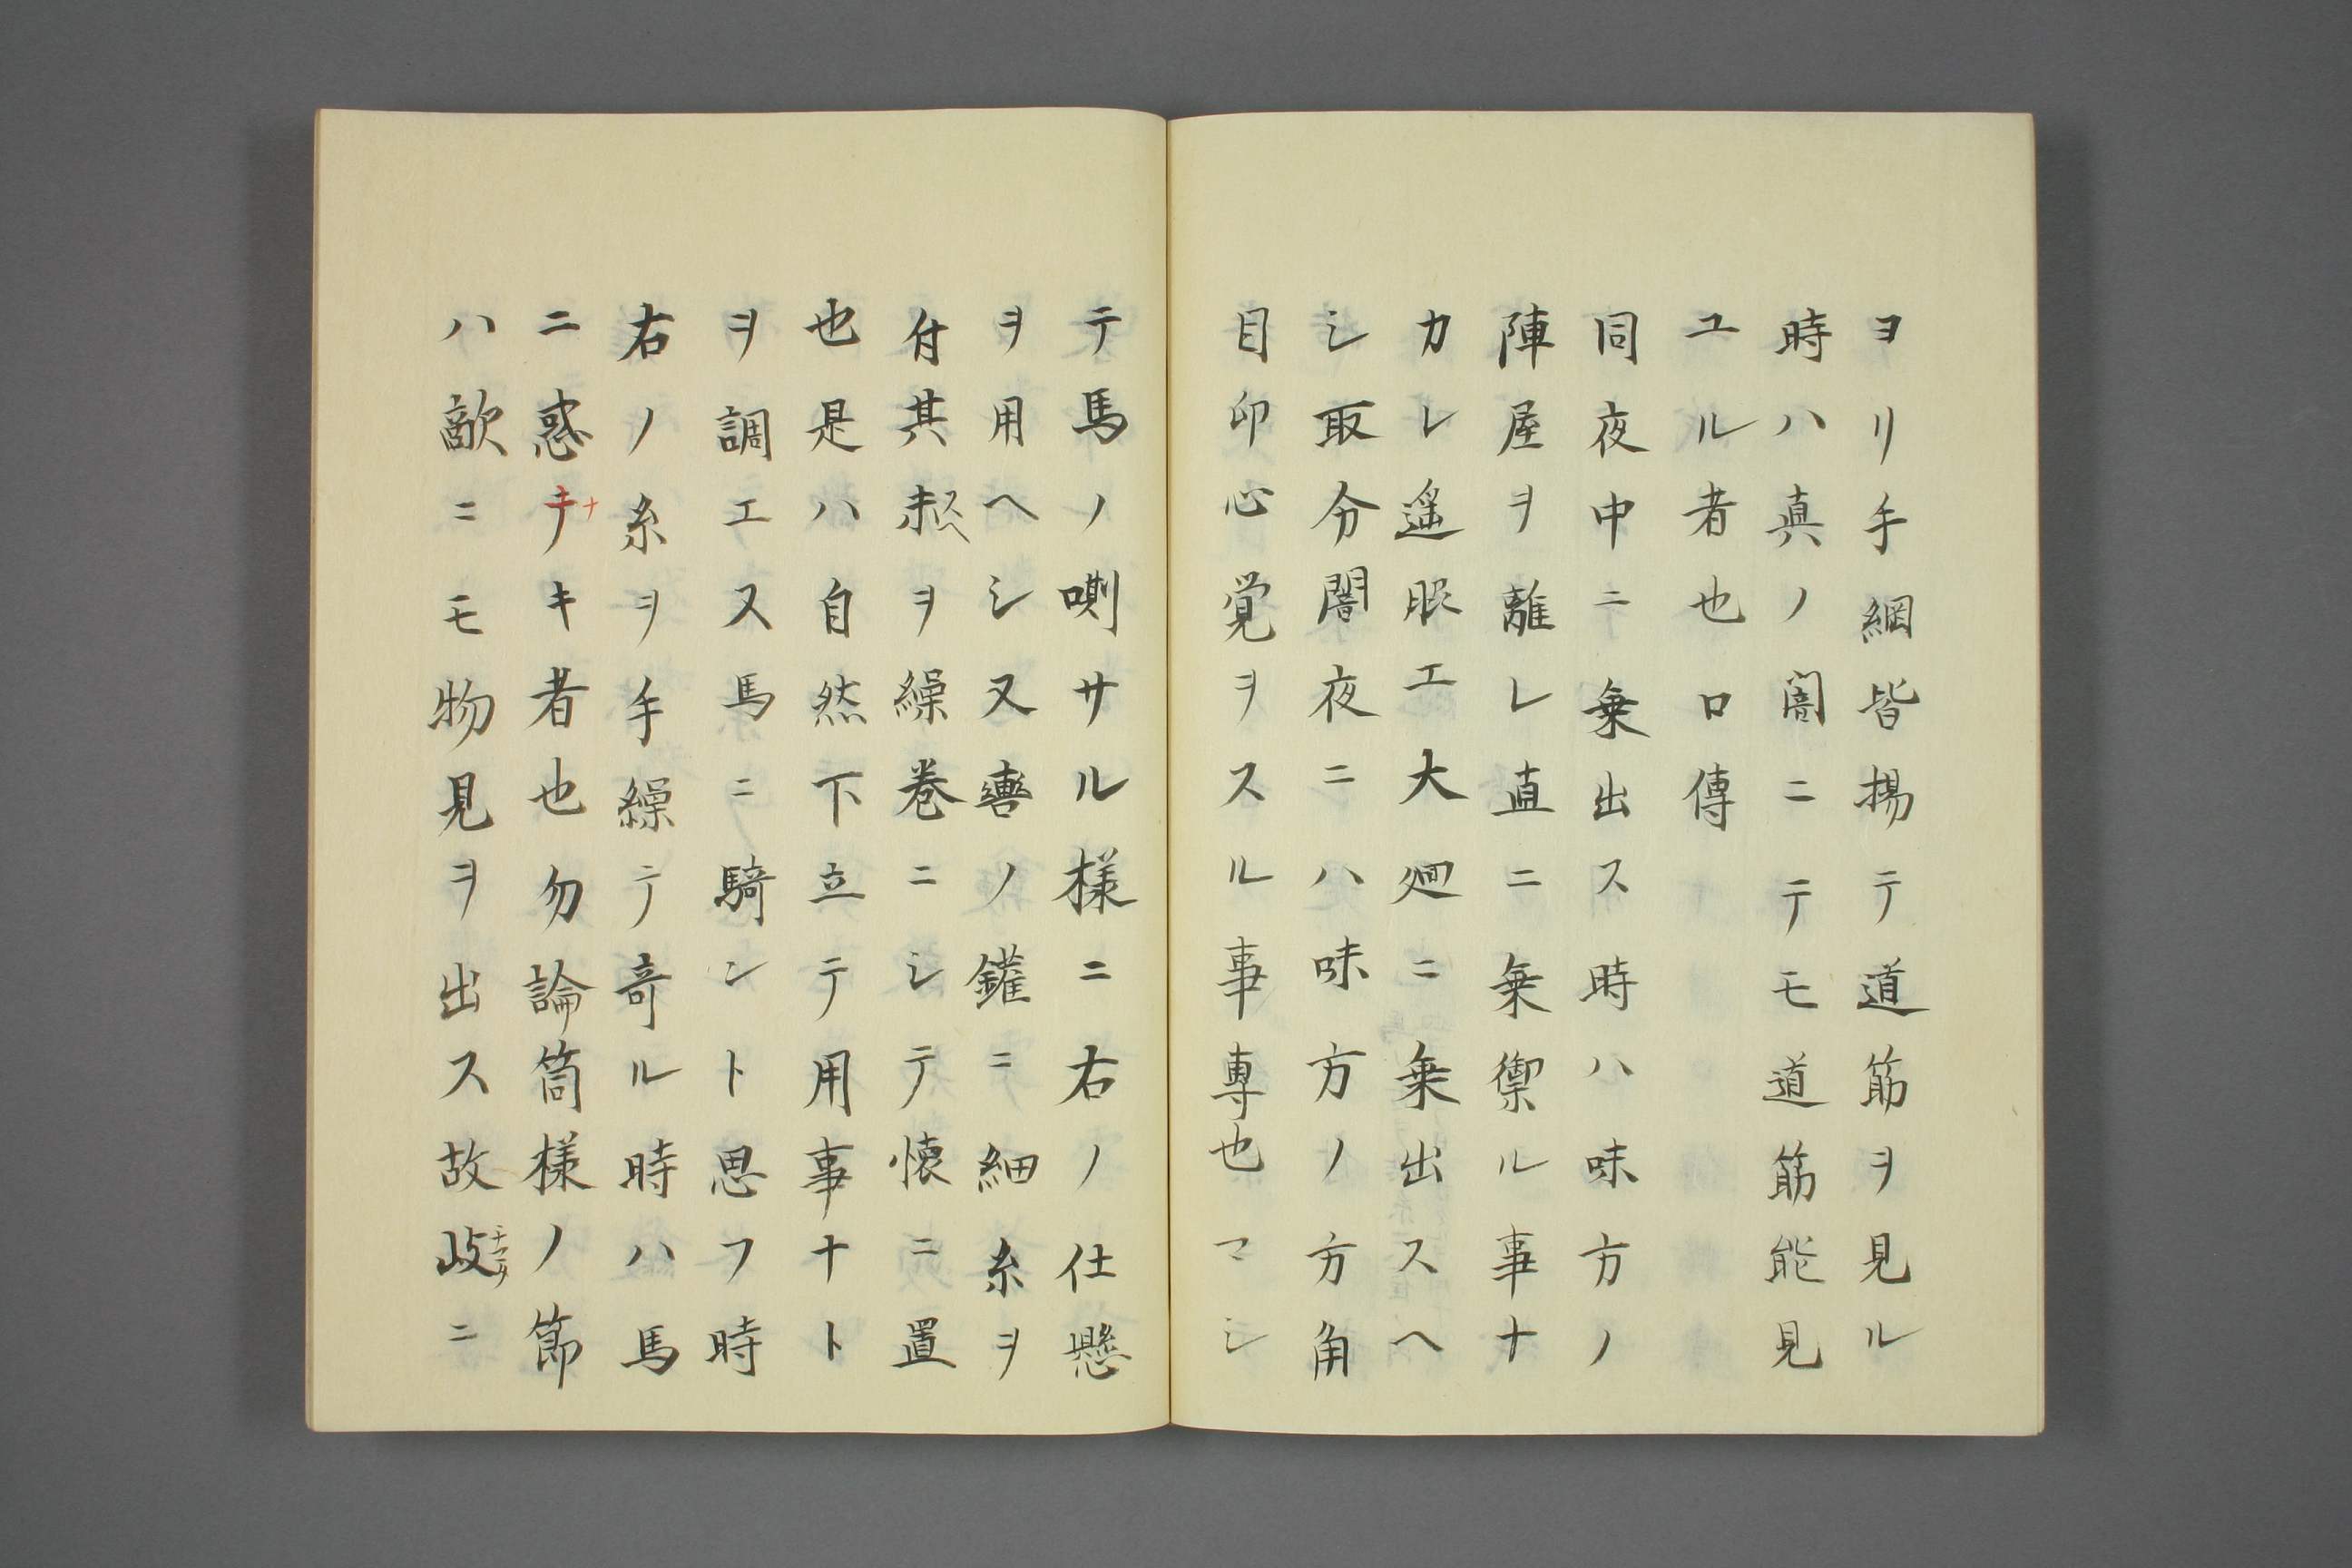 ヨリ手綱皆揚テ道筋ヲ見ル
時ハ真ノ闇ニテモ道筋能見
ユル者也口傳
同夜中ニ乗出ス時ハ味方ノ
陣屋ヲ離レ直ニ乗禦ル事ナ
カレ遥脇エ大廻ニ乗出スヘ
シ取分闇夜ニハ味方ノ方角
目印心覚ヲスル事專也マシ
テ馬ノ嘶サル様ニ右ノ仕懸
ヲ用ヘシ又轡ノ鑵ニ細糸ヲ
付其末スヘヲ繰巻ニシテ懐ニ置
也是ハ自然下立テ用事ナト
ヲ調エス馬ニ騎ント思フ時
右ノ糸ヲ手繰テ寄ル時ハ馬
ニ惑ナキ者也勿論筒様ノ節
ハ敵ニモ物見ヲ出ス故岐ニ